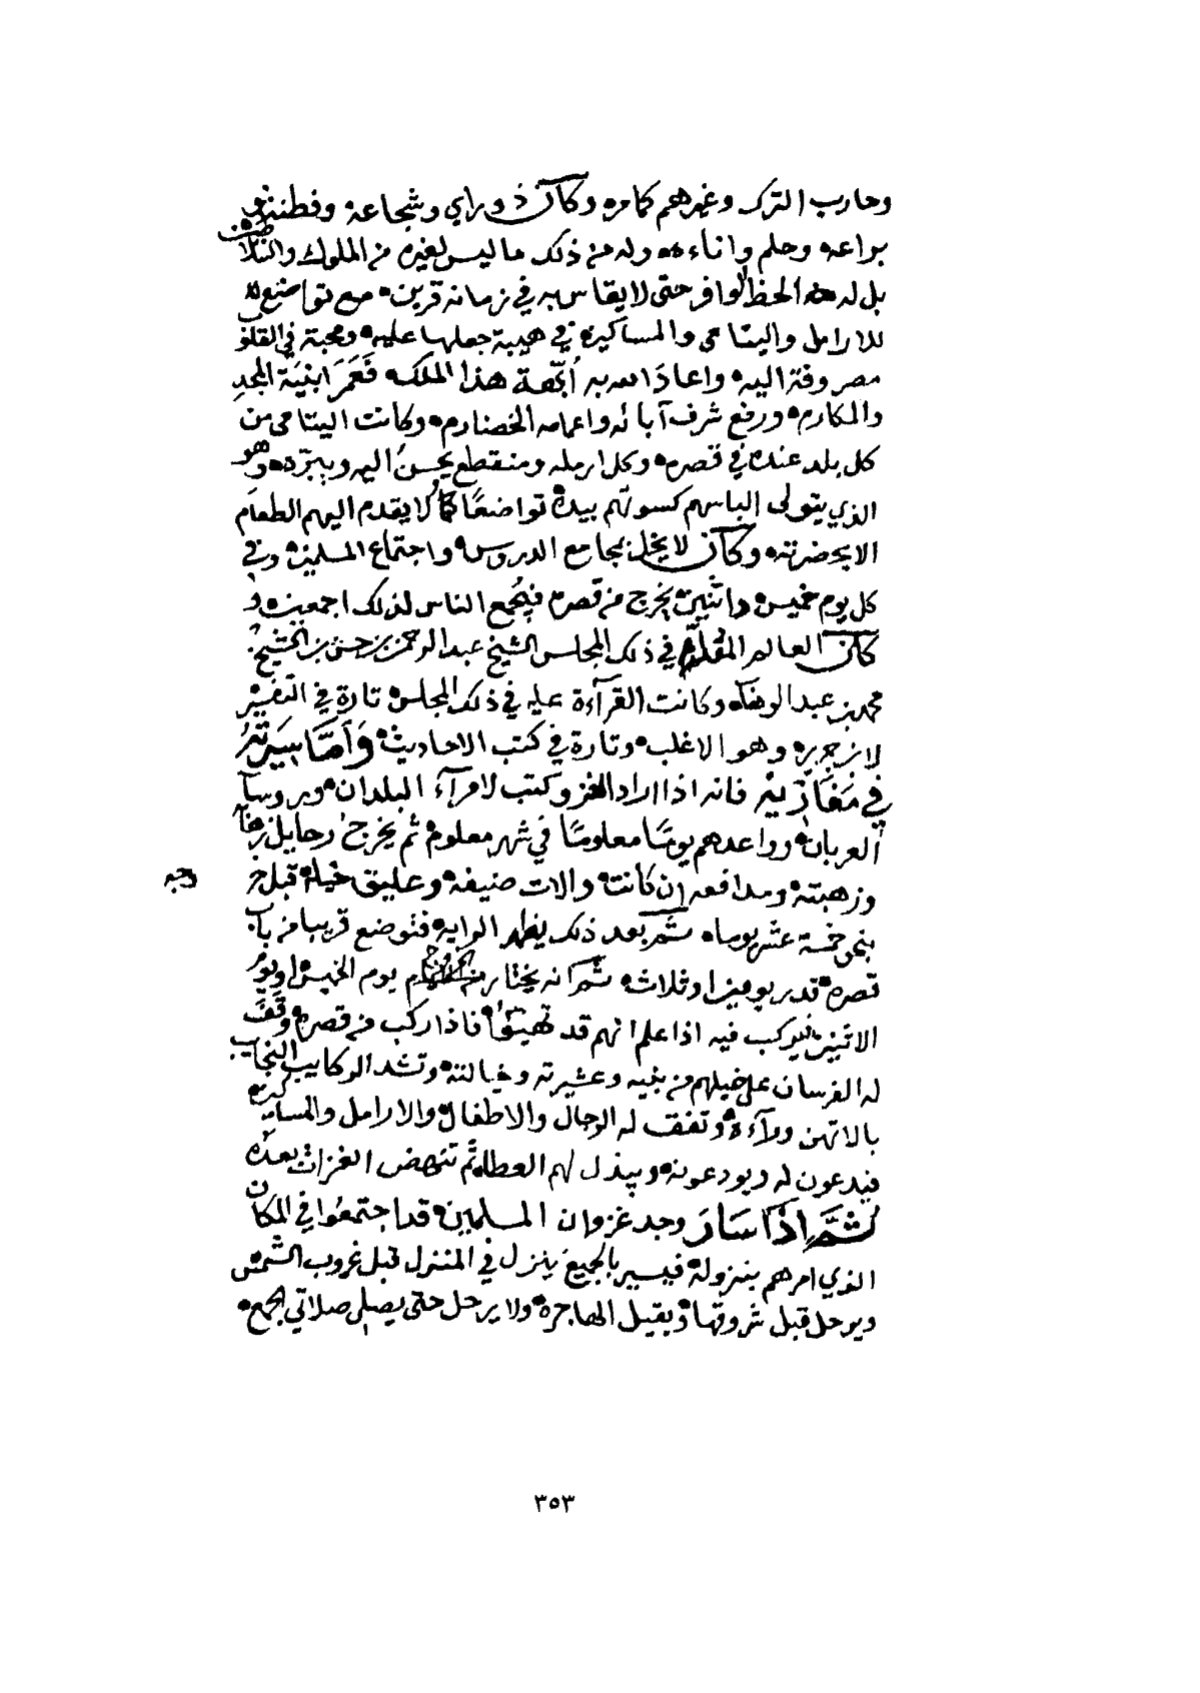 وحارب الترك وغيرهم كما مر ه وكان ذو راي وشجاعة وفطنة و
براعه وحلم واناءه ه وله من ذلك ما ليس لغيره من الملوك والسلاطين
بل له منه الحظ الوافر حتى لا يقاس به في زمانه قرين ه مع تواضع
للارامل واليتامى والمساكين ه في هيبة جعلها عليه ه ومحبة في القلوب
مصروفة اليه ه واعاذ الله به أبّهة هذا الملك ه فَعَمَرَ ابنيَة المجدِ
والمكارم ه ورفع شرف آبائه واعمامه الخضارم ه وكانت اليتامى من
كل بلد عنده في قصره ه وكل ارمله ومنقطع يحسنُ اليه ويبرّه ه وهو
الذي يتولى الباسهم كسوتهم بيده تواضعًا كما لا يقدم اليهم الطعام
الا بحضرته ه وكان لا يخل بمجامع الدروس ه واجتماع المسلمين ه وفي
كل يوم خميس ه واثنين يخرج من قصره فيجمع الناس لذلك اجمعين ه و
كان العالم المقدّم في ذلك المجلس الشيخ عبدالرحمن بن حسن بن الشيخ
محمد بن عبدالوهاب ه وكانت القرآءة عليه في ذلك المجلس تارة في التفسير
لابن جرير ه وهو الاغلب ه وتارة في كتب الاحاديث ه وَأمَّا سِيَرتُهُ
في مَغَازيْه فانه اذا اراد الغزو كتب لامرآء البلدان ه وروسآ
العربان ه وواعدهم يومًا معلومًا في شهر معلوم ه ثم يخرج رحايل زهابه
وزهبته ومدافعه إن كانت ه والات ضيفه ه وعليق خيله قبل خروجه
بنحو خمسة عشر يوما ه ثم بعد ذلك يظهر الراية ه فتوضع قريبا من باب
قصره ه قدر يومين او ثلاث ه ثم انه يختار من الايام يوم الخميس او يوم
الاثنين فيركب فيه اذا علم انهم قد تهيئوا ه فاذا ركب من قصره وقَفَتْ
له الفرسان على خيلهم من بنيه وعشيرته وخيالته ه وتشد الركايب النجايب
بالاتهن ورآءه ه وتقف له الرجال والاطفال والارامل والمساكين
فيدعون له ويودعونه ه ويبذل لهم العطاء ثم تنهض الغزات بعده
ثمَّ إذَا سَارَ وجد غزوان المسلمين ه قد اجتمعُوا في المكان
الذي امرهم بنزوله ه فيسير بالجميع ينزل في المنزل قبل غروب الشمس
ويرحل قبل شروقها ه ويقيل الهاجرة ه ولا يرحل حتى يصلي صلاتي الجمع ه
٣٥٣